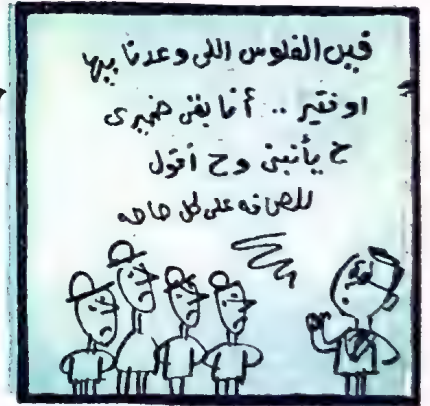 فين الفلوس اللى وعدنا بيها
اوفتير .. أنا بقى ضميرى
ح يأنبنى وح أقول
للصحافه على كل حاجه